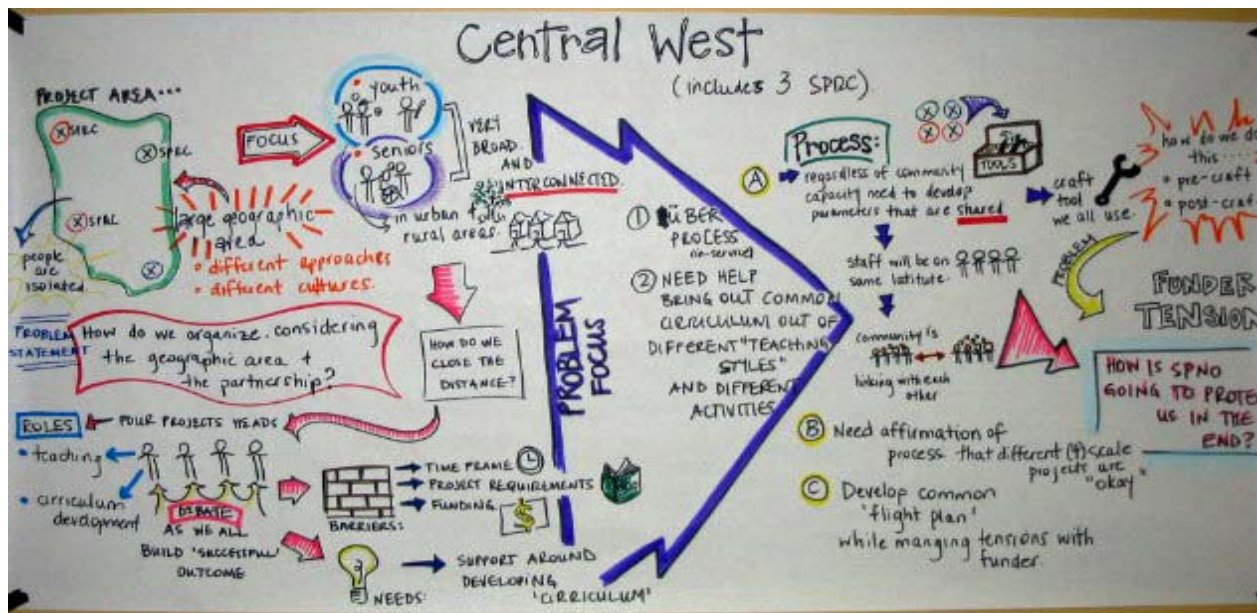 Central West
(includes 3 SPRC)
PROJECT AREA...
SPRC
SPRC
large geographic
area
• different approaches
• different cultures.
people
are
isolated.
FOCUS
• youth
• seniors
VERY
BROAD.
AND
INTERCONNECTED.
in urban +
rural areas.
PROBLEM
STATEMENT
How do we organize. considering
the geographic area +
the partnership?
HOW DO WE
CLOSE THE
DISTANCE?
ROLES
FOUR PROJECTS HEADS
• teaching
• cirriculum
development
DEBATE
AS WE ALL
BUILD 'SUCCESSFUL'
OUTCOME
BARRIERS:
TIME FRAME
PROJECT REQUIREMENTS
FUNDING.
$
NEEDS:
SUPPORT AROUND
DEVELOPING
'CIRRICULUM'
PROBLEM
FOCUS
① ÜBER
PROCESS
② NEED HELP
BRING OUT COMMON
CIRRICULUM OUT OF
DIFFERENT "TEACHING
STYLES"
AND DIFFERENT
ACTIVITIES
Process:
TOOLS
Ⓐ regardless of community
capacity need to develop
parameters that are shared
craft
tool
we all use.
how do we do
this....
• pre-craft
• post-craft
staff will be on
same latitute.
community is
linking with each
other
PROBLEM
FUNDER
TENSION
HOW IS SPNO
GOING TO PROTE
US IN THE
END?
Ⓑ Need affirmation of
process that different (4) scale
projects are
"okay"
Ⓒ Develop common
'flight plan'
while manging tensions with
funder.